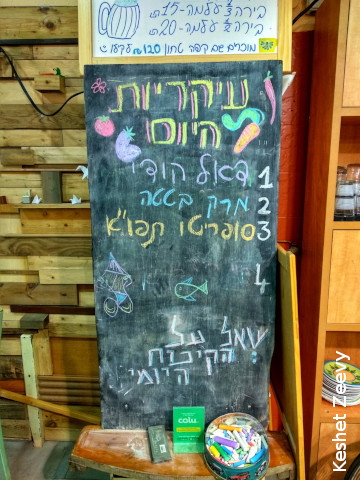 בירה 1/3 עלמה - 15 ₪
בירה 1/2 עלמה - 20 ₪
מוכרים שם קפה טחון 120₪ לקילו
עיקריות
היום
דאל הודי 1
מרק בטטה 2
סופריטו תפו"א 3
4
שאל על
הקינוח
היומי
colu
Keshet Zeevy